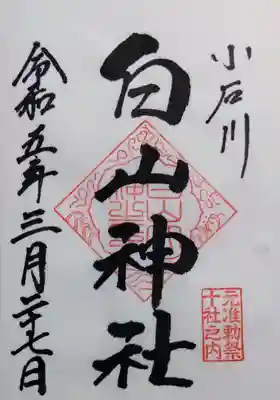 小石川
白山神社
元准勅祭
十社之内
令和五年三月二十七日